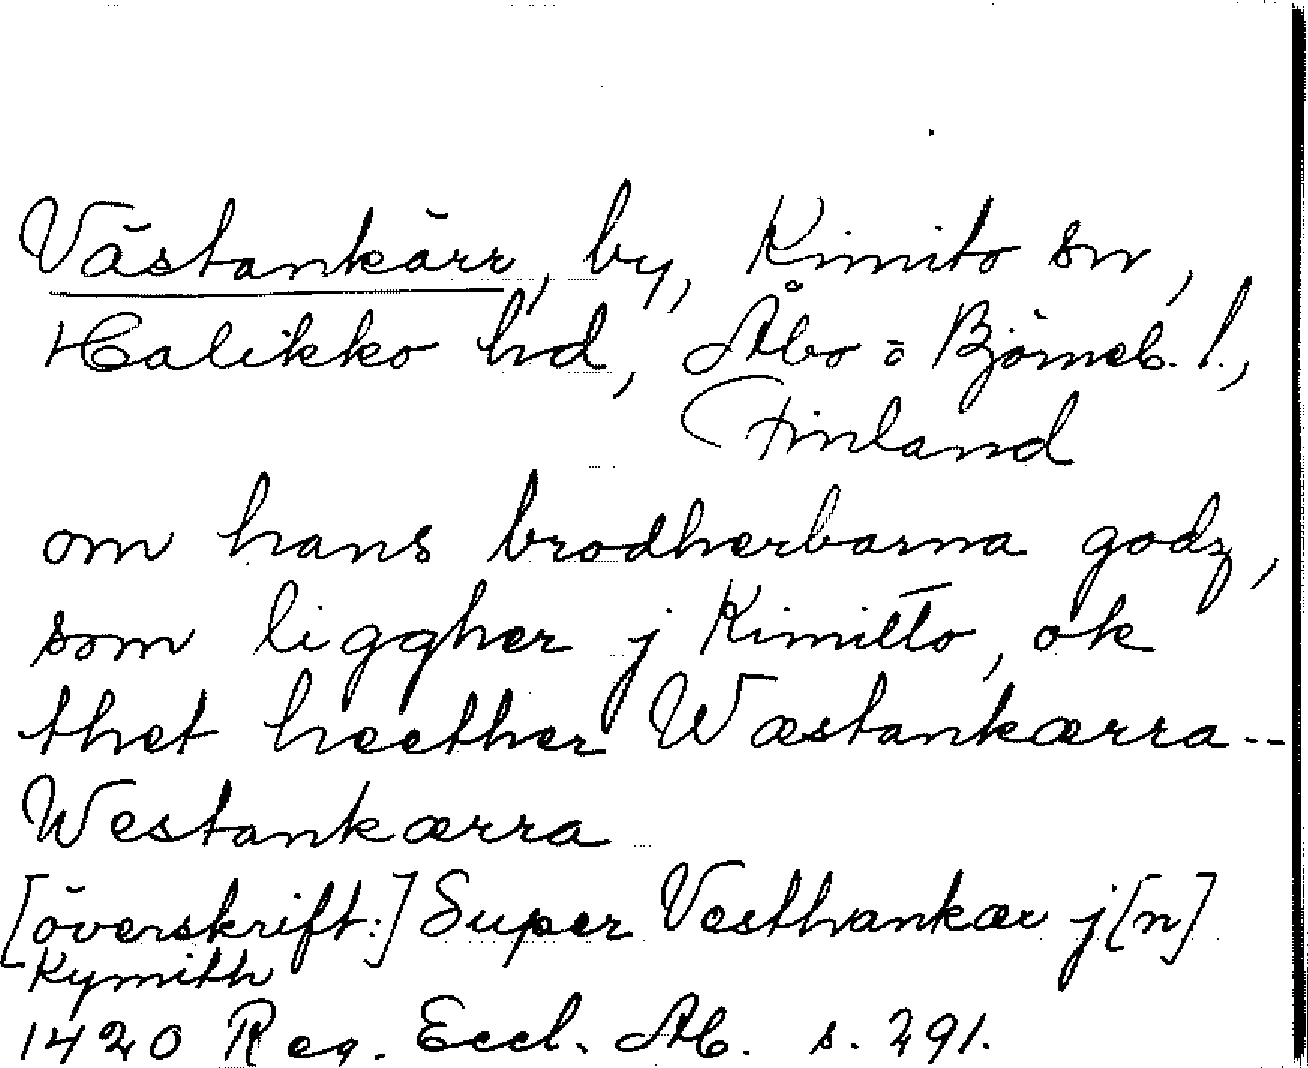 Västankärr, by, Kimito sn,
Halikko hd, Åbo o Björneb. l.,
Finland
om hans brodherbarna godz,
som liggher j Kimitto, ok
thet heether Wæstankærra --
Westankærra
[överskrift:] Super Vesthankær j[n]
Kymith
1420 Reg. Eccl. Ab. s. 291.